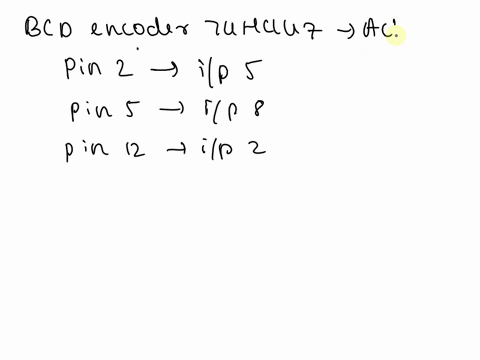 BCD encoder 74HC147 → AC
Pin 2 → i/p 5
pin 5 → i/p 8
pin 12 → i/p 2